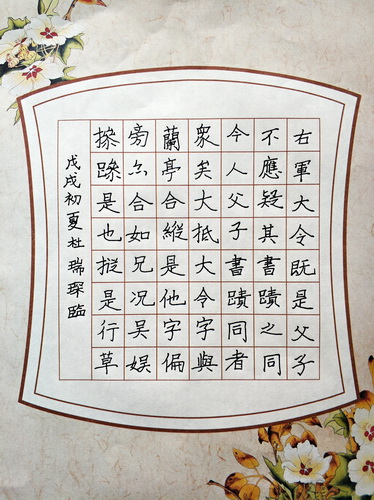 右軍大令既是父子
不應疑其書蹟之同
今人父子書蹟同者
衆矣大抵大令字與
蘭亭合縱是他字偏
旁亦合如兄况吴娱
是也揔是行草
戊戌初夏杜瑞琛臨